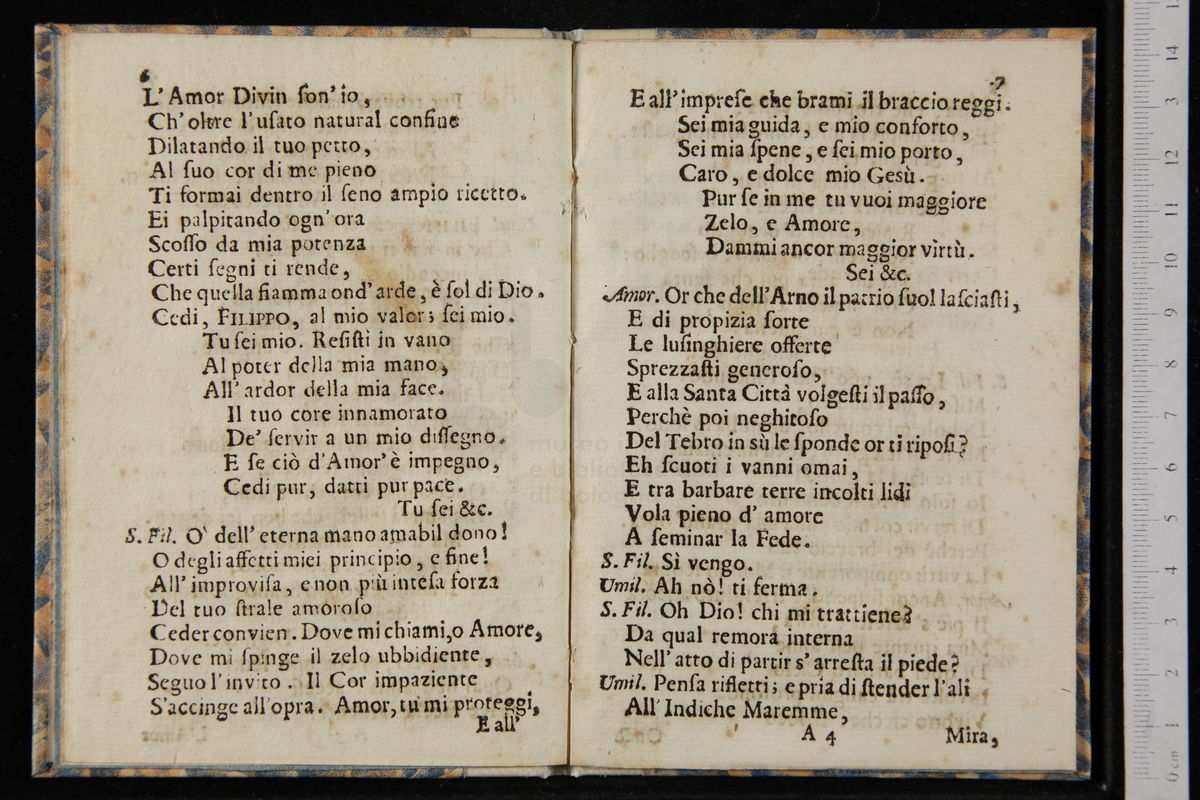 6
L' Amor Divin ſon' io,
Ch' oltre l' uſato natural confine
Dilatando il tuo petto,
Al ſuo cor di me pieno
Ti formai dentro il ſeno ampio ricetto.
Ei palpitando ogn' ora
Scoſſo da mia potenza
Certi ſegni ti rende,
Che quella fiamma ond' arde, è ſol di Dio.
Cedi, FILIPPO, al mio valor; ſei mio.
Tu ſei mio. Reſiſti in vano
Al poter della mia mano,
All' ardor della mia face.
Il tuo core innamorato
De' ſervir a un mio diſſegno.
E ſe ciò d'Amor' è impegno,
Cedi pur, datti pur pace.
Tu ſei &c.
S. Fil. O' dell' eterna mano amabil dono!
O degli affetti miei principio, e fine!
All' improviſa, e non più inteſa forza
Del tuo ſtrale amoroſo
Ceder convien. Dove mi chiami, o Amore,
Dove mi ſpinge il zelo ubbidiente,
Seguo l' invito. Il Cor impaziente
S'accinge all'opra. Amor, tu mi proteggi,
E all'
7
E all' impreſe che brami il braccio reggi.
Sei mia guida, e mio conforto,
Sei mia ſpene, e ſei mio porto,
Caro, e dolce mio Gesù.
Pur ſe in me tu vuoi maggiore
Zelo, e Amore,
Dammi ancor maggior virtù.
Sei &c.
Amor. Or che dell' Arno il patrio ſuol laſciaſti,
E di propizia ſorte
Le luſinghiere offerte
Sprezzaſti generoſo,
E alla Santa Città volgeſti il paſſo,
Perchè poi neghitoſo
Del Tebro in sù le ſponde or ti ripoſi?
Eh ſcuoti i vanni omai,
E tra barbare terre incolti lidi
Vola pieno d' amore
A ſeminar la Fede.
S. Fil. Sì vengo.
Umil. Ah nò! ti ferma.
S. Fil. Oh Dio! chi mi trattiene?
Da qual remora interna
Nell' atto di partir s' arreſta il piede?
Umil. Penſa rifletti; e pria di ſtender l'ali
All' Indiche Maremme,
A 4
Mira,